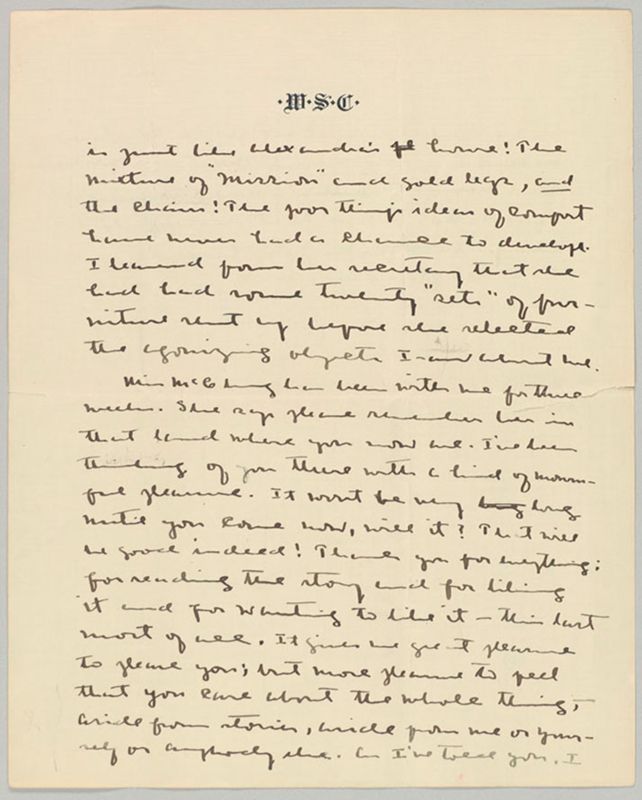 ·W·S·C·
is just like Alexandra's house! The
mixture of "Mission" and gold legs, and
the chairs! The poor thing's ideas of comfort
have never had a chance to develop.
I learned from her secretary that she
had had some twenty "sets" of fur-
niture sent up before she selected
the agonizing objects I saw about me.
Miss McClung has been with me for three
weeks. She says please remember her in
that land where you now are. I've been
thinking of you there with a kind of mourn-
ful pleasure. It won't be very long
until you come now, will it? That will
be good indeed! Thank you for everything:
for reading the story and for liking
it and for wanting to like it — this last
most of all. It gives me great pleasure
to please you; but more pleasure to feel
that you care about the whole thing,
aside from stories, aside from me or your-
self or anybody else. As I've told you, I